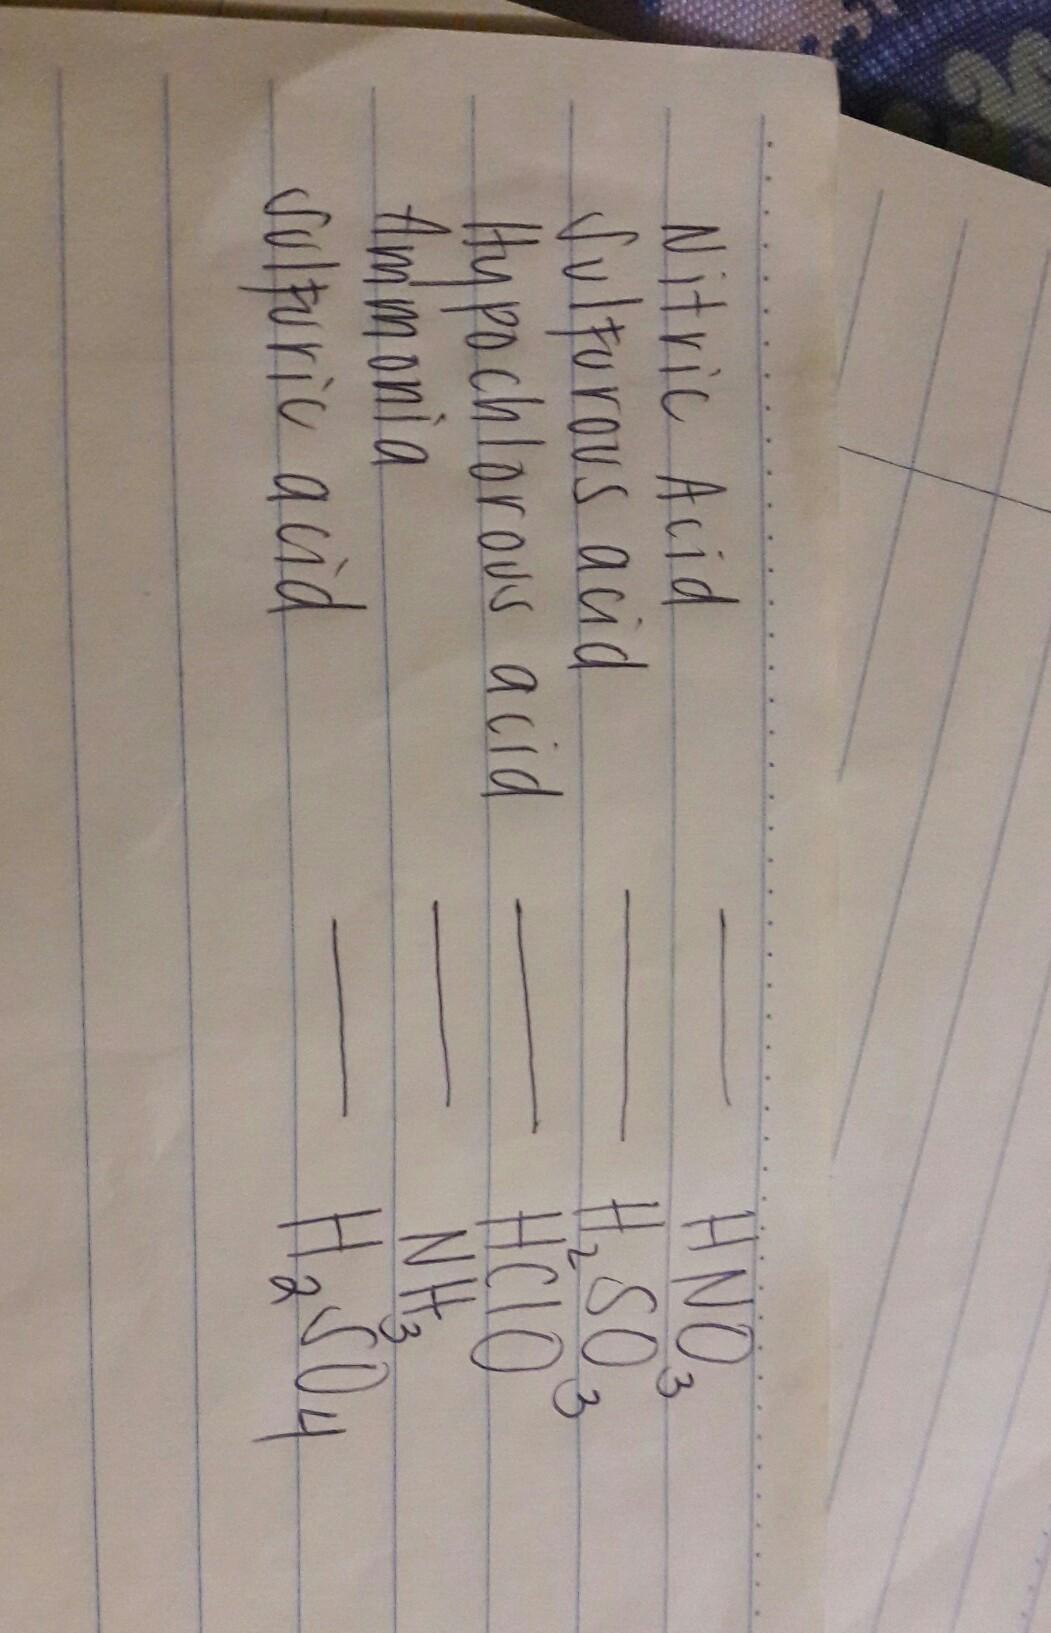 Nitric Acid — HNO₃
Sulfurous acid — H₂SO₃
Hypochlorous acid — HClO
Ammonia — NH₃
Sulfuric acid — H₂SO₄